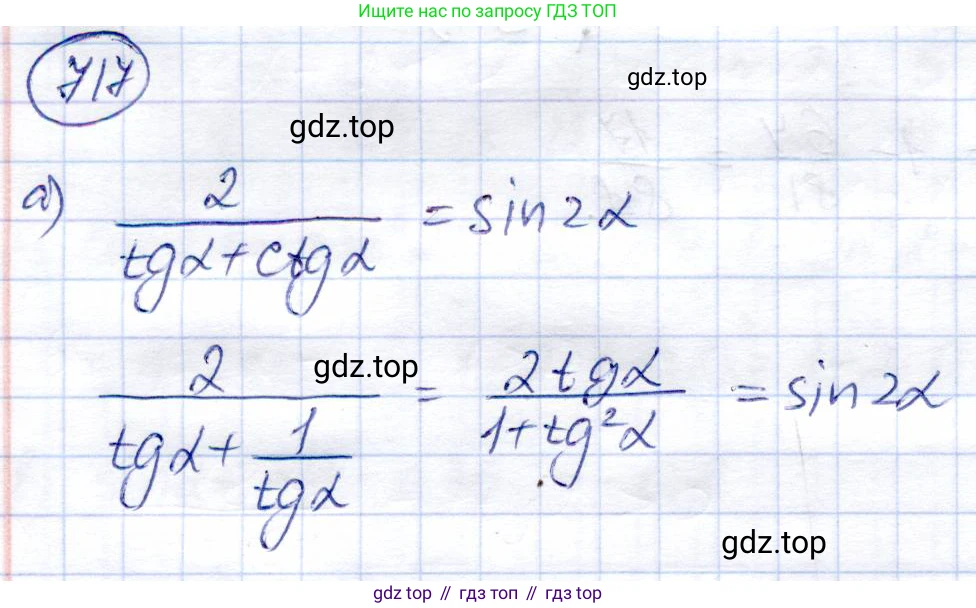 Ищите нас по запросу ГДЗ ТОП
717
gdz.top
gdz.top
а) 2 / (tgα + ctgα) = sin2α
gdz.top
2 / (tgα + 1/tgα) = 2tgα / (1 + tg²α) = sin2α
gdz.top
gdz.top // гдз топ // гдз top